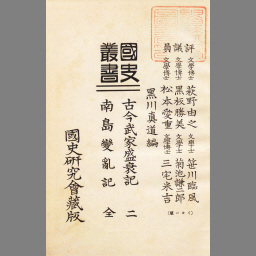 評議員
文學博士 萩野由之 文學士 笹川臨風
文學博士 黒板勝美 文學士 菊池謙二郎
文學博士 松本愛重 文學博士 三宅米吉
(順ハロイ)
黑川真道編
國史叢書
古今武家盛衰記 二
南島變亂記 全
國史研究會藏版